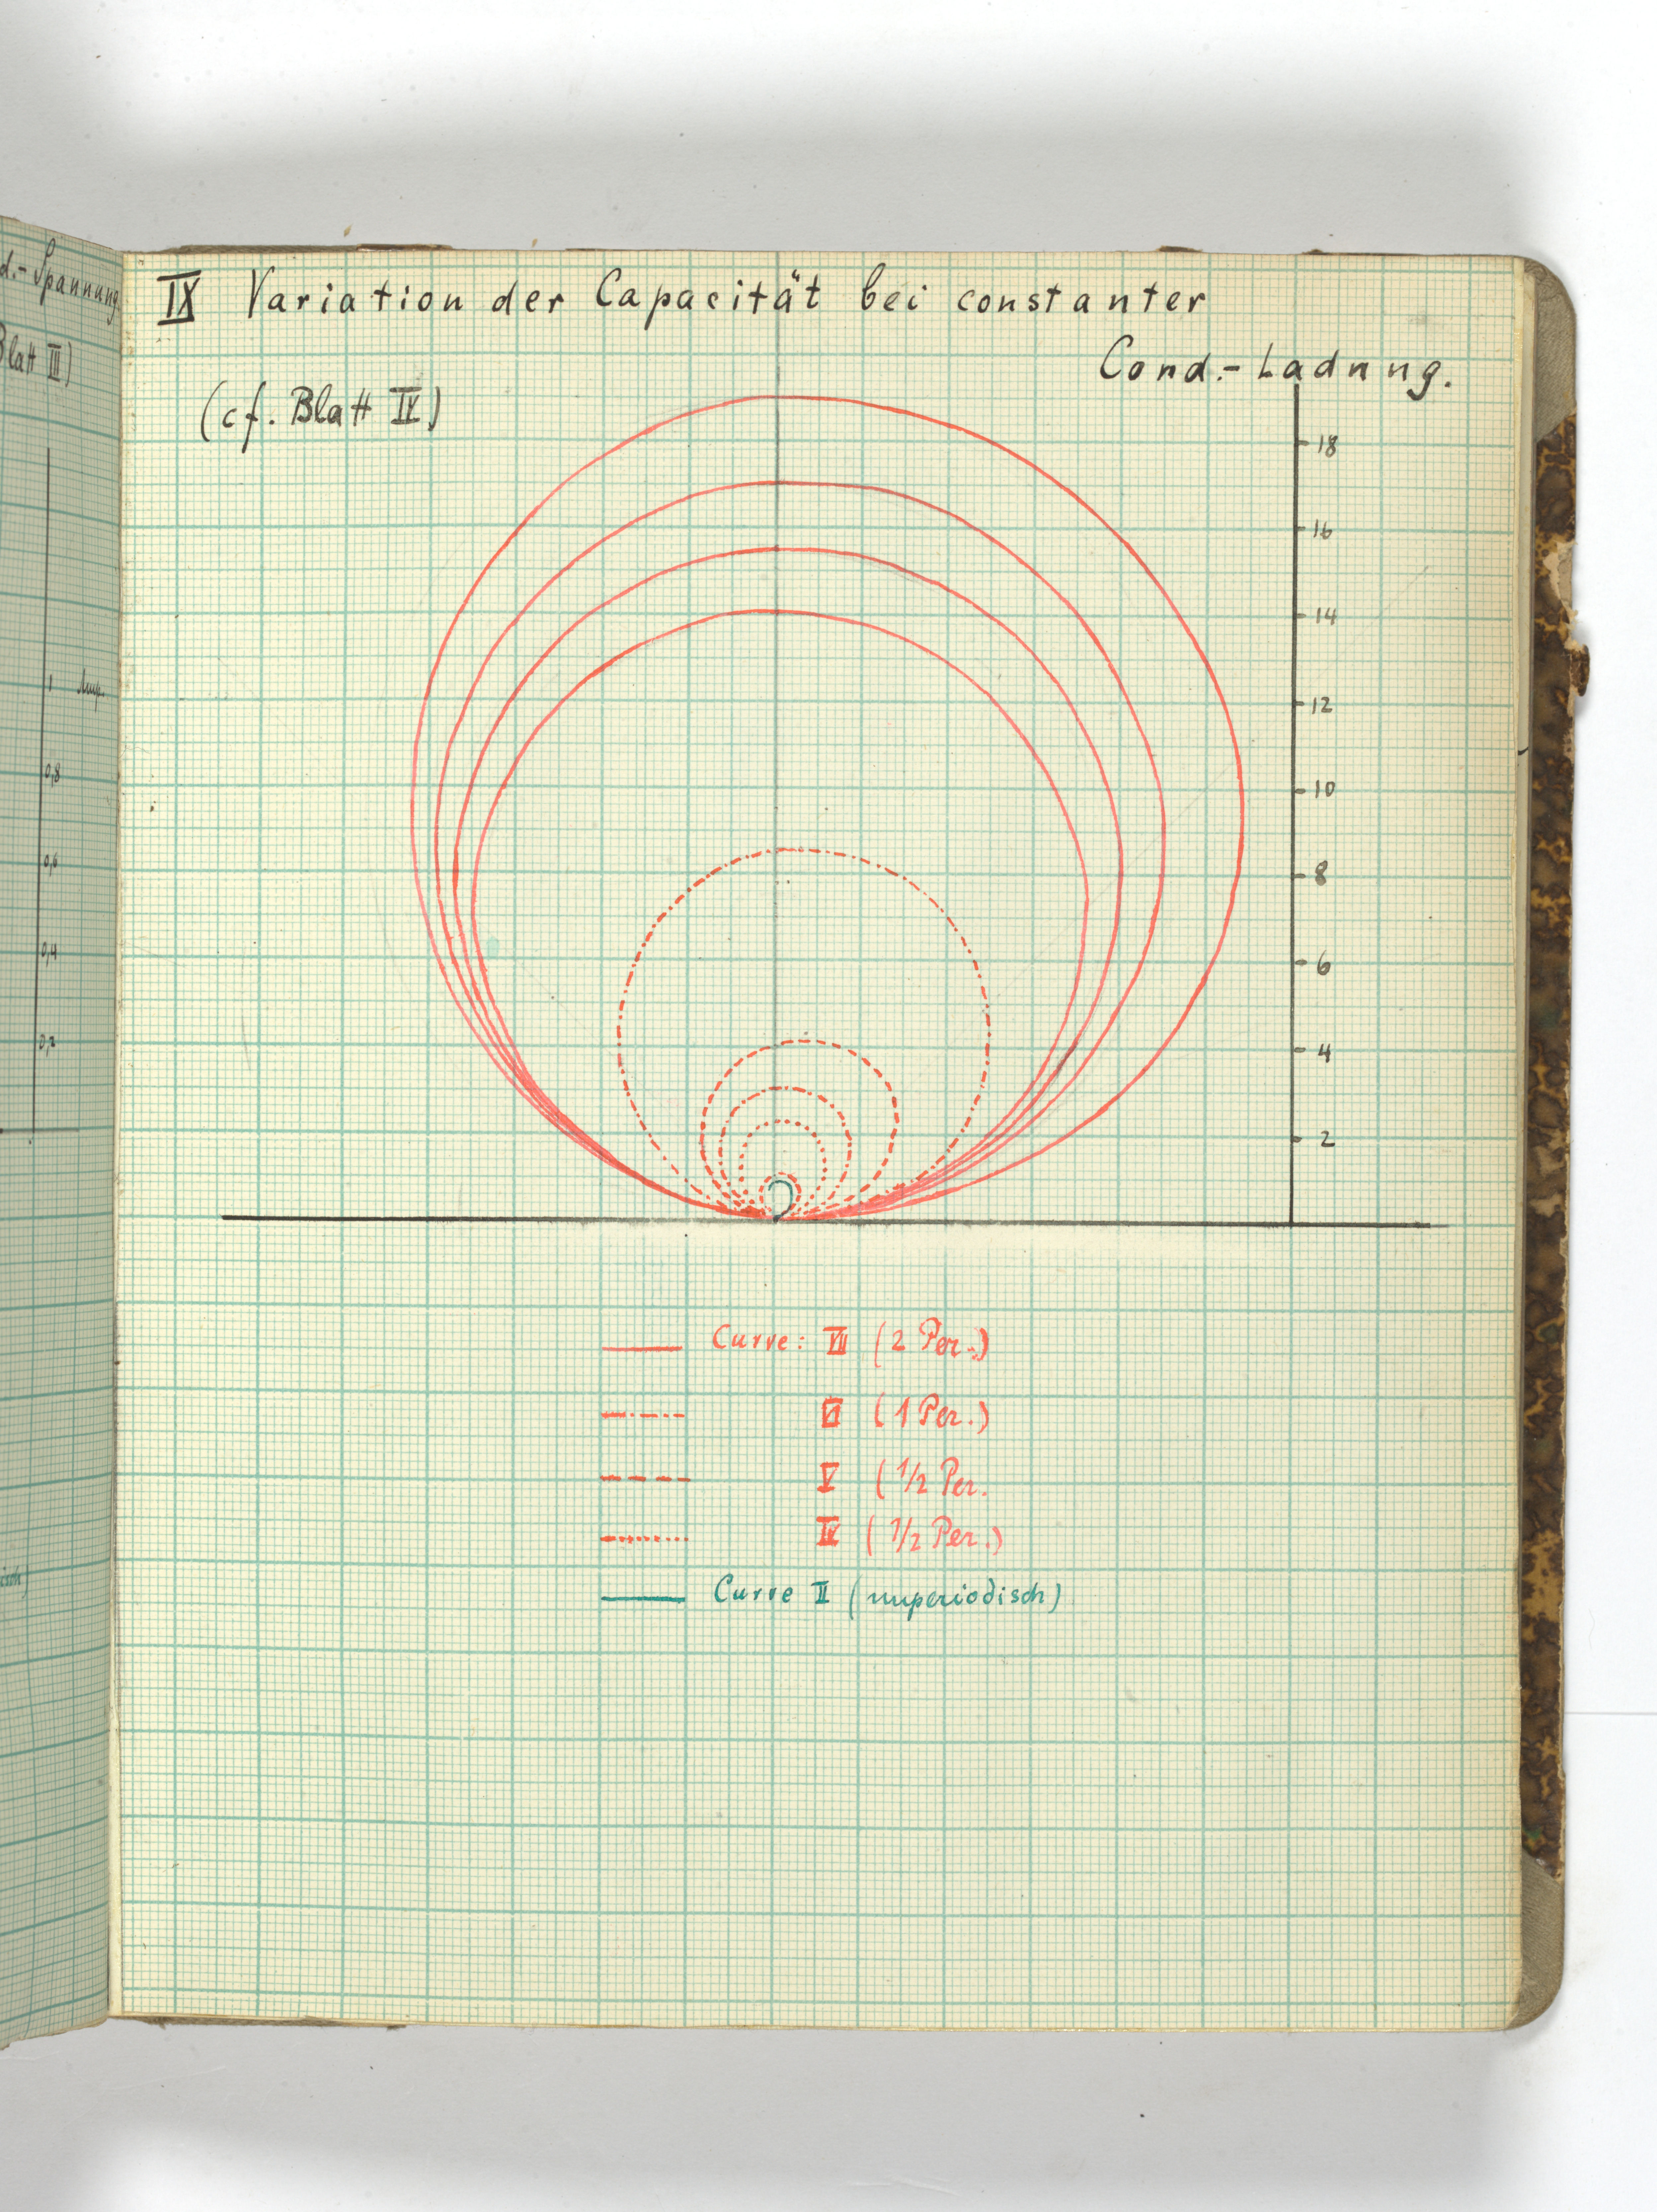 d.- Spannung.
Blatt III)
1 Amp.
0,8
0,6
0,4
0,2
isch)
IX Variation der Capacität bei constanter
Cond.- Ladung.
(cf. Blatt IV)
18
16
14
12
10
8
6
4
2
Curve: VII (2 Per.)
VI (1 Per.)
V (1/2 Per.
IV (1/2 Per.)
Curve II (unperiodisch)